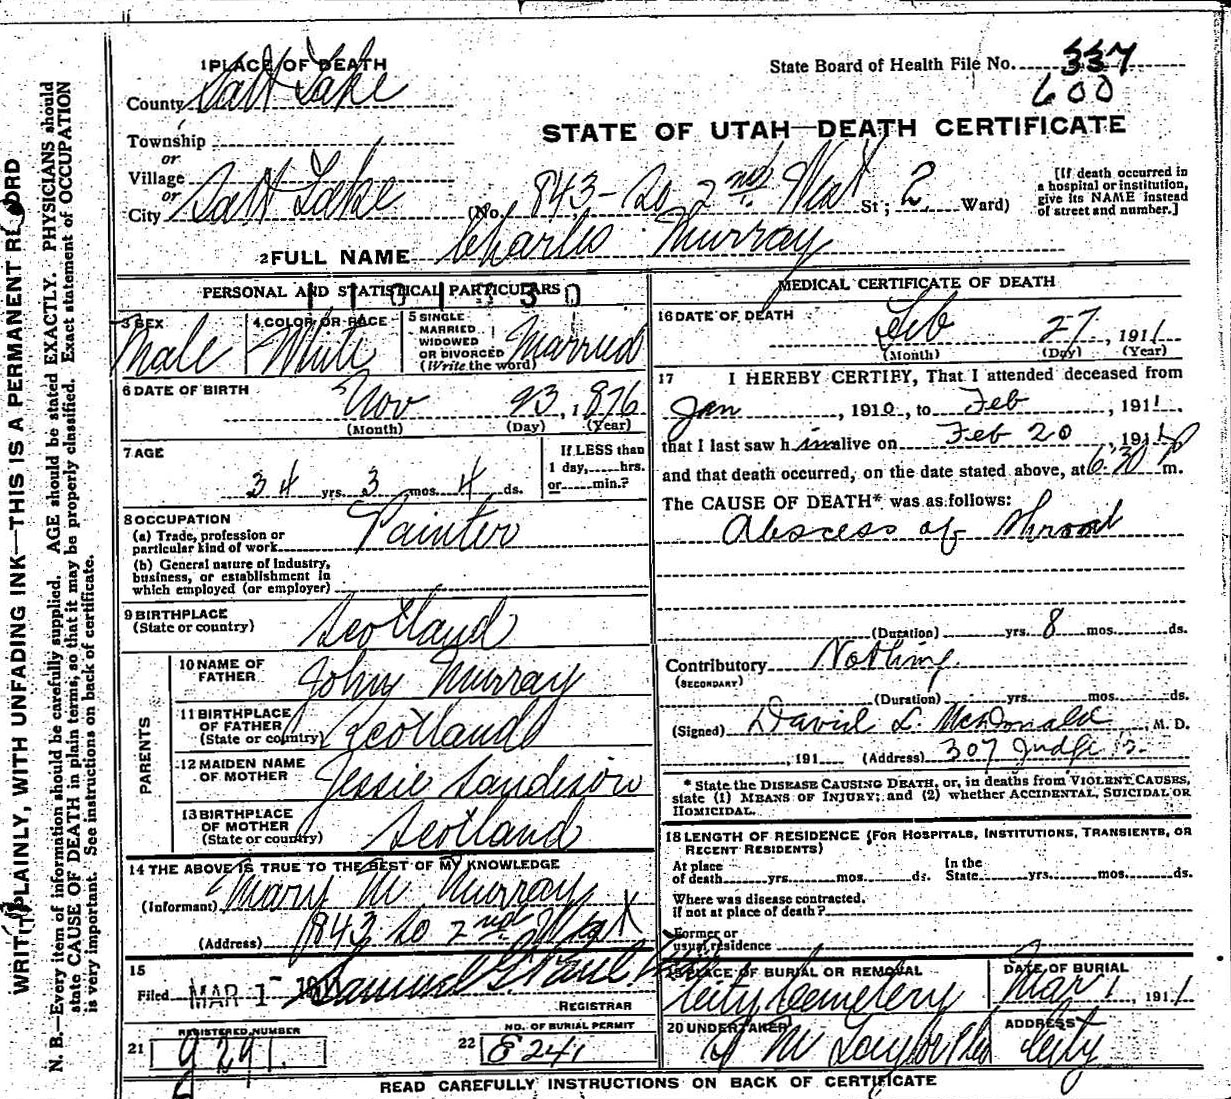 1 PLACE OF DEATH
County Salt Lake
Township
or
Village
or
City Salt Lake
State Board of Health File No. 337
600
STATE OF UTAH—DEATH CERTIFICATE
(No. 843 - So 2nd West St; 2 Ward)
[If death occurred in
a hospital or institution,
give its NAME instead
of street and number.]
2 FULL NAME Charles Murray
PERSONAL AND STATISTICAL PARTICULARS
3 SEX
Male
4 COLOR OR RACE
White
5 SINGLE
MARRIED
WIDOWED
OR DIVORCED
(Write the word) Married
6 DATE OF BIRTH
Nov 23, 1876
(Month) (Day) (Year)
7 AGE
34 yrs. 3 mos. 4 ds.
If LESS than
1 day, hrs.
or min.?
8 OCCUPATION
(a) Trade, profession or
particular kind of work Painter
(b) General nature of Industry,
business, or establishment in
which employed (or employer)
9 BIRTHPLACE
(State or country) Scotland
PARENTS
10 NAME OF
FATHER John Murray
11 BIRTHPLACE
OF FATHER
(State or country) Scotland
12 MAIDEN NAME
OF MOTHER Jessie Sandison
13 BIRTHPLACE
OF MOTHER
(State or country) Scotland
14 THE ABOVE IS TRUE TO THE BEST OF MY KNOWLEDGE
(Informant) Mary M Murray
(Address) 843 So 2nd West
15
Filed MAR 1- 1911 Samuel G. Paul
REGISTRAR
21 REGISTERED NUMBER
g 291.
22 NO. OF BURIAL PERMIT
E 241
MEDICAL CERTIFICATE OF DEATH
16 DATE OF DEATH
Feb 27, 1911
(Month) (Day) (Year)
17 I HEREBY CERTIFY, That I attended deceased from
Jan, 1910, to Feb, 1911.
that I last saw him alive on Feb 20, 1911
and that death occurred, on the date stated above, at 6:30 P m.
The CAUSE OF DEATH* was as follows:
Abscess of Throat
(Duration) yrs. 8 mos. ds.
Contributory Nothing
(SECONDARY)
(Duration) yrs. mos. ds.
(Signed) David L. McDonald, M. D.
, 191 (Address) 307 Judge B.
* State the DISEASE CAUSING DEATH, or, in deaths from VIOLENT CAUSES,
state (1) MEANS OF INJURY; and (2) whether ACCIDENTAL, SUICIDAL OR
HOMICIDAL.
18 LENGTH OF RESIDENCE (FOR HOSPITALS, INSTITUTIONS, TRANSIENTS, OR
RECENT RESIDENTS)
At place
of death yrs. mos. ds.
In the
State yrs. mos. ds.
Where was disease contracted,
if not at place of death?
Former or
usual residence
19 PLACE OF BURIAL OR REMOVAL
City Cemetery
DATE OF BURIAL
Mar 1, 1911
20 UNDERTAKER
S M Taylor
ADDRESS
City
READ CAREFULLY INSTRUCTIONS ON BACK OF CERTIFICATE
WRITE PLAINLY, WITH UNFADING INK—THIS IS A PERMANENT RECORD
N. B.—Every item of information should be carefully supplied. AGE should be stated EXACTLY. PHYSICIANS should
state CAUSE OF DEATH in plain terms, so that it may be properly classified. Exact statement of OCCUPATION
is very important. See instructions on back of certificate.